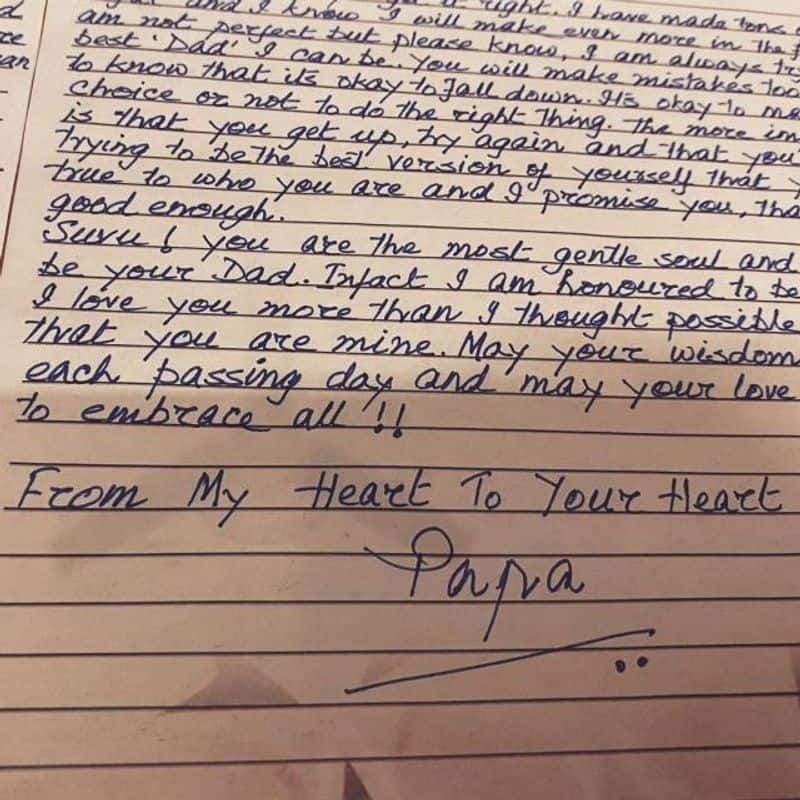 and I know I will make even more in the
am not perfect but please know, I am always
best 'Dad' I can be. You will make mistakes too
to know that its okay to fall down. It's okay to
choice or not to do the right thing. The more
is that you get up, try again and that you
trying to be the best version of yourself that
true to who you are and I promise you,
good enough.
Suvu! you are the most gentle soul and
be your Dad. Infact I am honoured to be
I love you more than I thought possible
that you are mine. May your wisdom
each passing day and may your love
to embrace all !!
From My Heart To Your Heart
Papa